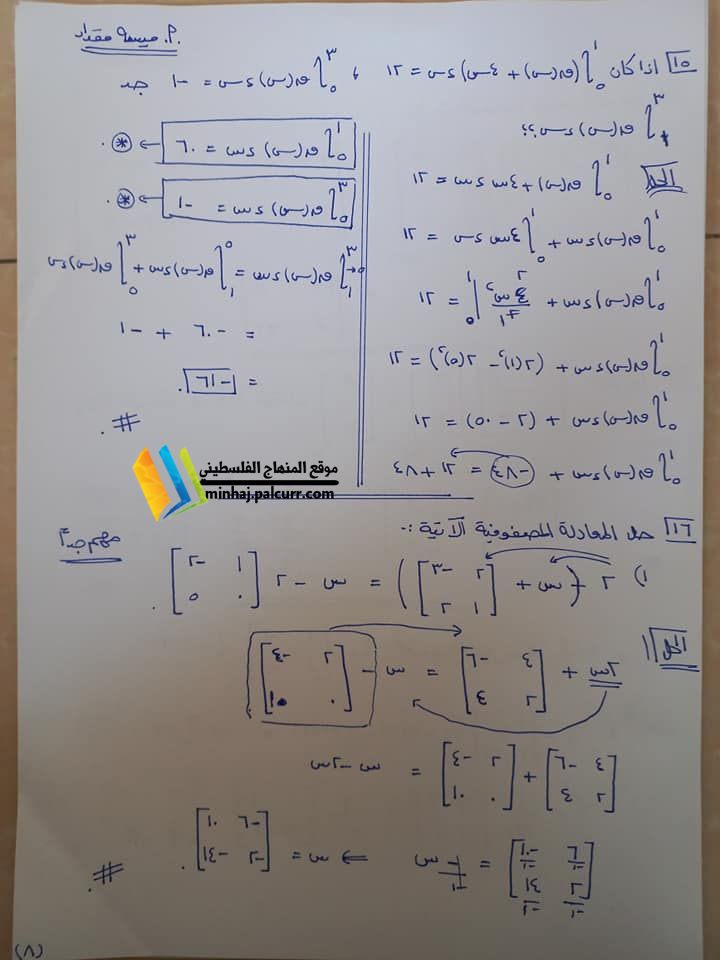 أ. ميسرة مقداد
١٥ اذا كان ∫₀¹ (ق(س) + ٤س) ءس = ١٢ ، ∫₀³ ق(س) ءس = -١ جد
∫₁³ ق(س) ءس ؟؟
الحل ∫₀¹ ق(س) + ٤س ءس = ١٢
∫₀¹ ق(س) ءس + ∫₀¹ ٤س ءس = ١٢
∫₀¹ ق(س) ءس + ٤س²/٢ |₀¹ = ١٢
∫₀¹ ق(س) ءس + (٢(١)² - ٢(٥)²) = ١٢
∫₀¹ ق(س) ءس + (٢ - ٥٠) = ١٢
∫₀¹ ق(س) ءس + -٤٨ = ١٢ + ٤٨
∫₀¹ ق(س) ءس = ٦٠ ← *
∫₀³ ق(س) ءس = -١ ← *
∫₁³ ق(س) ءس = ∫₁⁰ ق(س) ءس + ∫₀³ ق(س) ءس
= -٦٠ + -١
= -٦١
#
موقع المنهاج الفلسطيني
minhaj.palcurr.com
١٦ حل المعادلة المصفوفية الآتية :-
مهم جداً
١) ٢ (س + [٢ -٣ ; ١ ٢]) = س - ٢ [١ -٢ ; ٠ ٥]
الحل ١ ٢س + [٤ -٦ ; ٢ ٤] = س - [٢ -٤ ; ٠ ١٠]
[٤ -٦ ; ٢ ٤] + [٢ -٤ ; ٠ ١٠] = س - ٢س
[٦/-١ -١٠/-١ ; ٢/-١ ١٤/-١] = -١س/-١ ⇐ س = [-٦ ١٠ ; -٢ -١٤]
#
(٨)